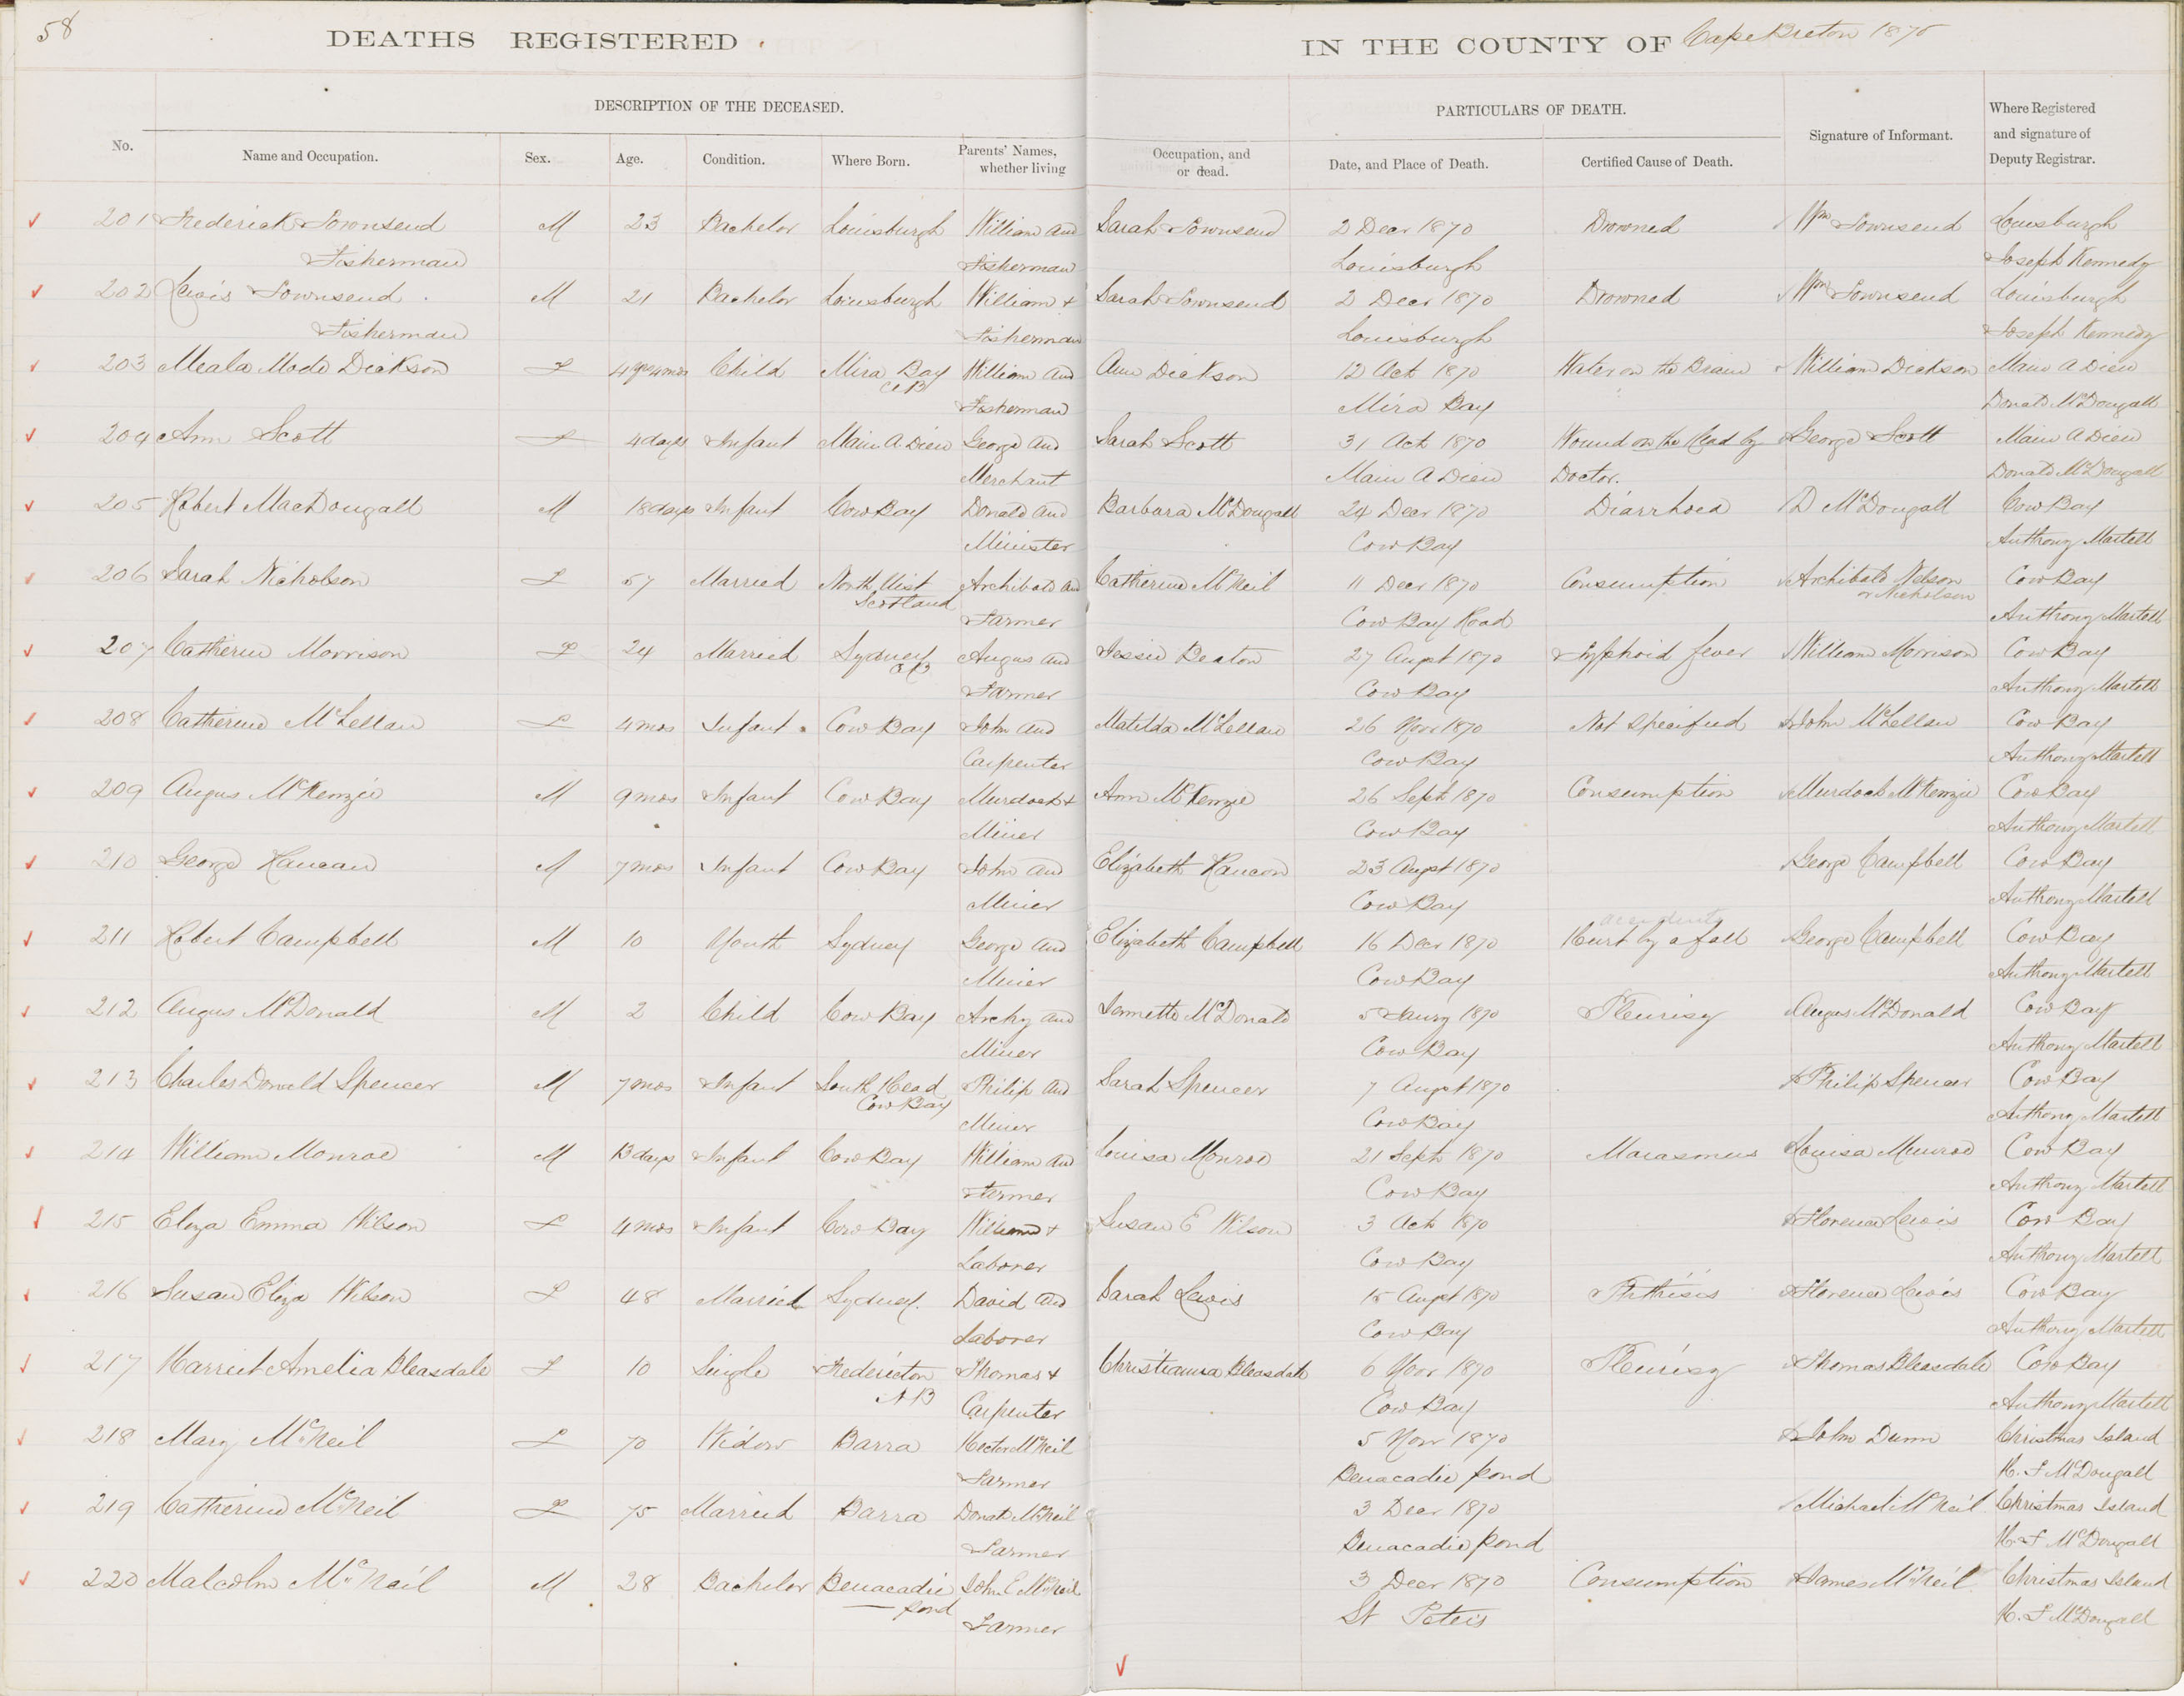 58
DEATHS REGISTERED IN THE COUNTY OF Cape Breton 1870
DESCRIPTION OF THE DECEASED. PARTICULARS OF DEATH.
No. Name and Occupation. Sex. Age. Condition. Where Born. Parents' Names, whether living Occupation, and or dead. Date, and Place of Death. Certified Cause of Death. Signature of Informant. Where Registered and signature of Deputy Registrar.
201 Frederick Townsend M 23 Bachelor Louisburgh William and Sarah Townsend 2 Decr 1870 Drowned Wm Townsend Louisburgh
Fisherman Fisherman Louisburgh Joseph Kennedy
202 Lewis Townsend M 21 Bachelor Louisburgh William + Sarah Townsend 2 Decr 1870 Drowned Wm Townsend Louisburgh
Fisherman Fisherman Louisburgh Joseph Kennedy
203 Meala Dickson F 4 yrs 4 mos Child Mira Bay William and Ann Dickson 12 Oct 1870 Water on the Brain William Dickson Main A Dieu
CB Fisherman Mira Bay Donald McDougall
204 Ann Scott F 4 days Infant Main A Dieu George and Sarah Scott 31 Oct 1870 Wound on the Head by George Scott Main A Dieu
Merchant Main A Dieu Doctor. Donald McDougall
205 Robert MacDougall M 18 days Infant Cow Bay Donald and Barbara McDougall 24 Decr 1870 Diarrhoea D McDougall Cow Bay
Minister Cow Bay Anthony Martell
206 Sarah Nicholson F 57 Married North Uist Archibald and Catherine McNeil 11 Decr 1870 Consumption Archibald Nelson Cow Bay
Scotland Farmer Cow Bay Road or Nicholson Anthony Martell
207 Catherine Morrison F 24 Married Sydney Angus and Jessie Beaton 27 Augst 1870 Typhoid fever William Morrison Cow Bay
CB Farmer Cow Bay Anthony Martell
208 Catherine McLellan F 4 mos Infant Cow Bay John and Matilda McLellan 26 Novr 1870 Not Specified John McLellan Cow Bay
Carpenter Cow Bay Anthony Martell
209 Angus McKenzie M 9 mos Infant Cow Bay Murdock + Ann McKenzie 26 Sept 1870 Consumption Murdoch McKenzie Cow Bay
Miner Cow Bay Anthony Martell
210 George M 7 mos Infant Cow Bay John and Elizabeth 23 Augst 1870 George Campbell Cow Bay
Miner Cow Bay Anthony Martell
accident
211 Robert Campbell M 10 Youth Sydney George and Elizabeth Campbell 16 Decr 1870 Hurt by a fall George Campbell Cow Bay
Miner Cow Bay Anthony Martell
212 Angus McDonald M 2 Child Cow Bay Archy and Jennette McDonald 5 Jany 1870 Pleurisy Angus McDonald Cow Bay
Miner Cow Bay Anthony Martell
213 Charles Donald Spencer M 7 mos Infant South Head Philip and Sarah Spencer 7 Augst 1870 Philip Spencer Cow Bay
Cow Bay Miner Cow Bay Anthony Martell
214 William Monroe M 13 days Infant Cow Bay William and Louisa Monroe 21 Sept 1870 Marasmus Louisa Munroe Cow Bay
Farmer Cow Bay Anthony Martell
215 Eliza Emma Wilson F 4 mos Infant Cow Bay William + Susan E Wilson 3 Oct 1870 Florence Lewis Cow Bay
Laborer Cow Bay Anthony Martell
216 Susan Eliza Wilson F 48 Married Sydney. David and Sarah Lewis 15 Augst 1870 Phthisis Florence Lewis Cow Bay
Laborer Cow Bay Anthony Martell
217 Harriet Amelia Bleasdale F 10 Single Fredericton Thomas + Christianna Bleasdale 6 Novr 1870 Pleurisy Thomas Bleasdale Cow Bay
NB Carpenter Cow Bay Anthony Martell
218 Mary McNeil F 70 Widow Barra Hector McNeil 5 Novr 1870 John Dunn Christmas Island
Farmer Benacadie pond H. F McDougall
219 Catherine McNeil F 75 Married Barra Donald McNeil 3 Decr 1870 Michael McNeil Christmas Island
Farmer Benacadie pond H. F McDougall
220 Malcolm McNeil M 28 Bachelor Benacadie John E McNeil 3 Decr 1870 Consumption James McNeil Christmas Island
pond Farmer St Peters H. F McDougall